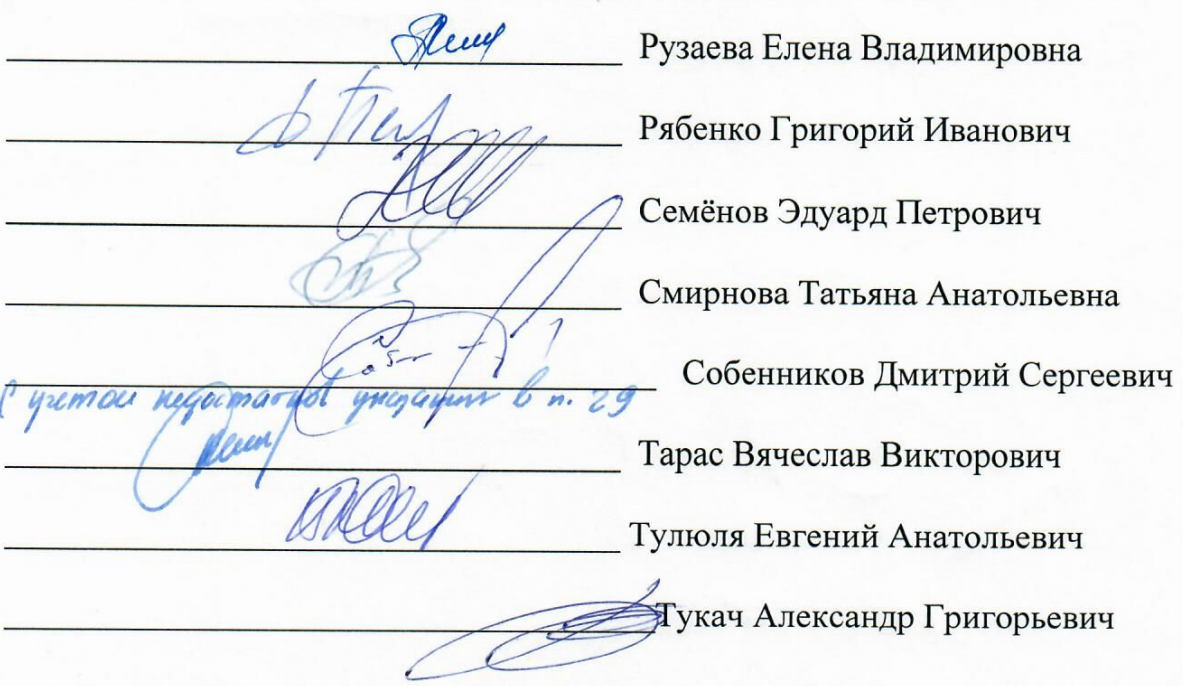 Рузаева Елена Владимировна
Рябенко Григорий Иванович
Семёнов Эдуард Петрович
Смирнова Татьяна Анатольевна
Собенников Дмитрий Сергеевич
С учетом недостатков указанных в п. 29
Тарас Вячеслав Викторович
Тулюля Евгений Анатольевич
Тукач Александр Григорьевич